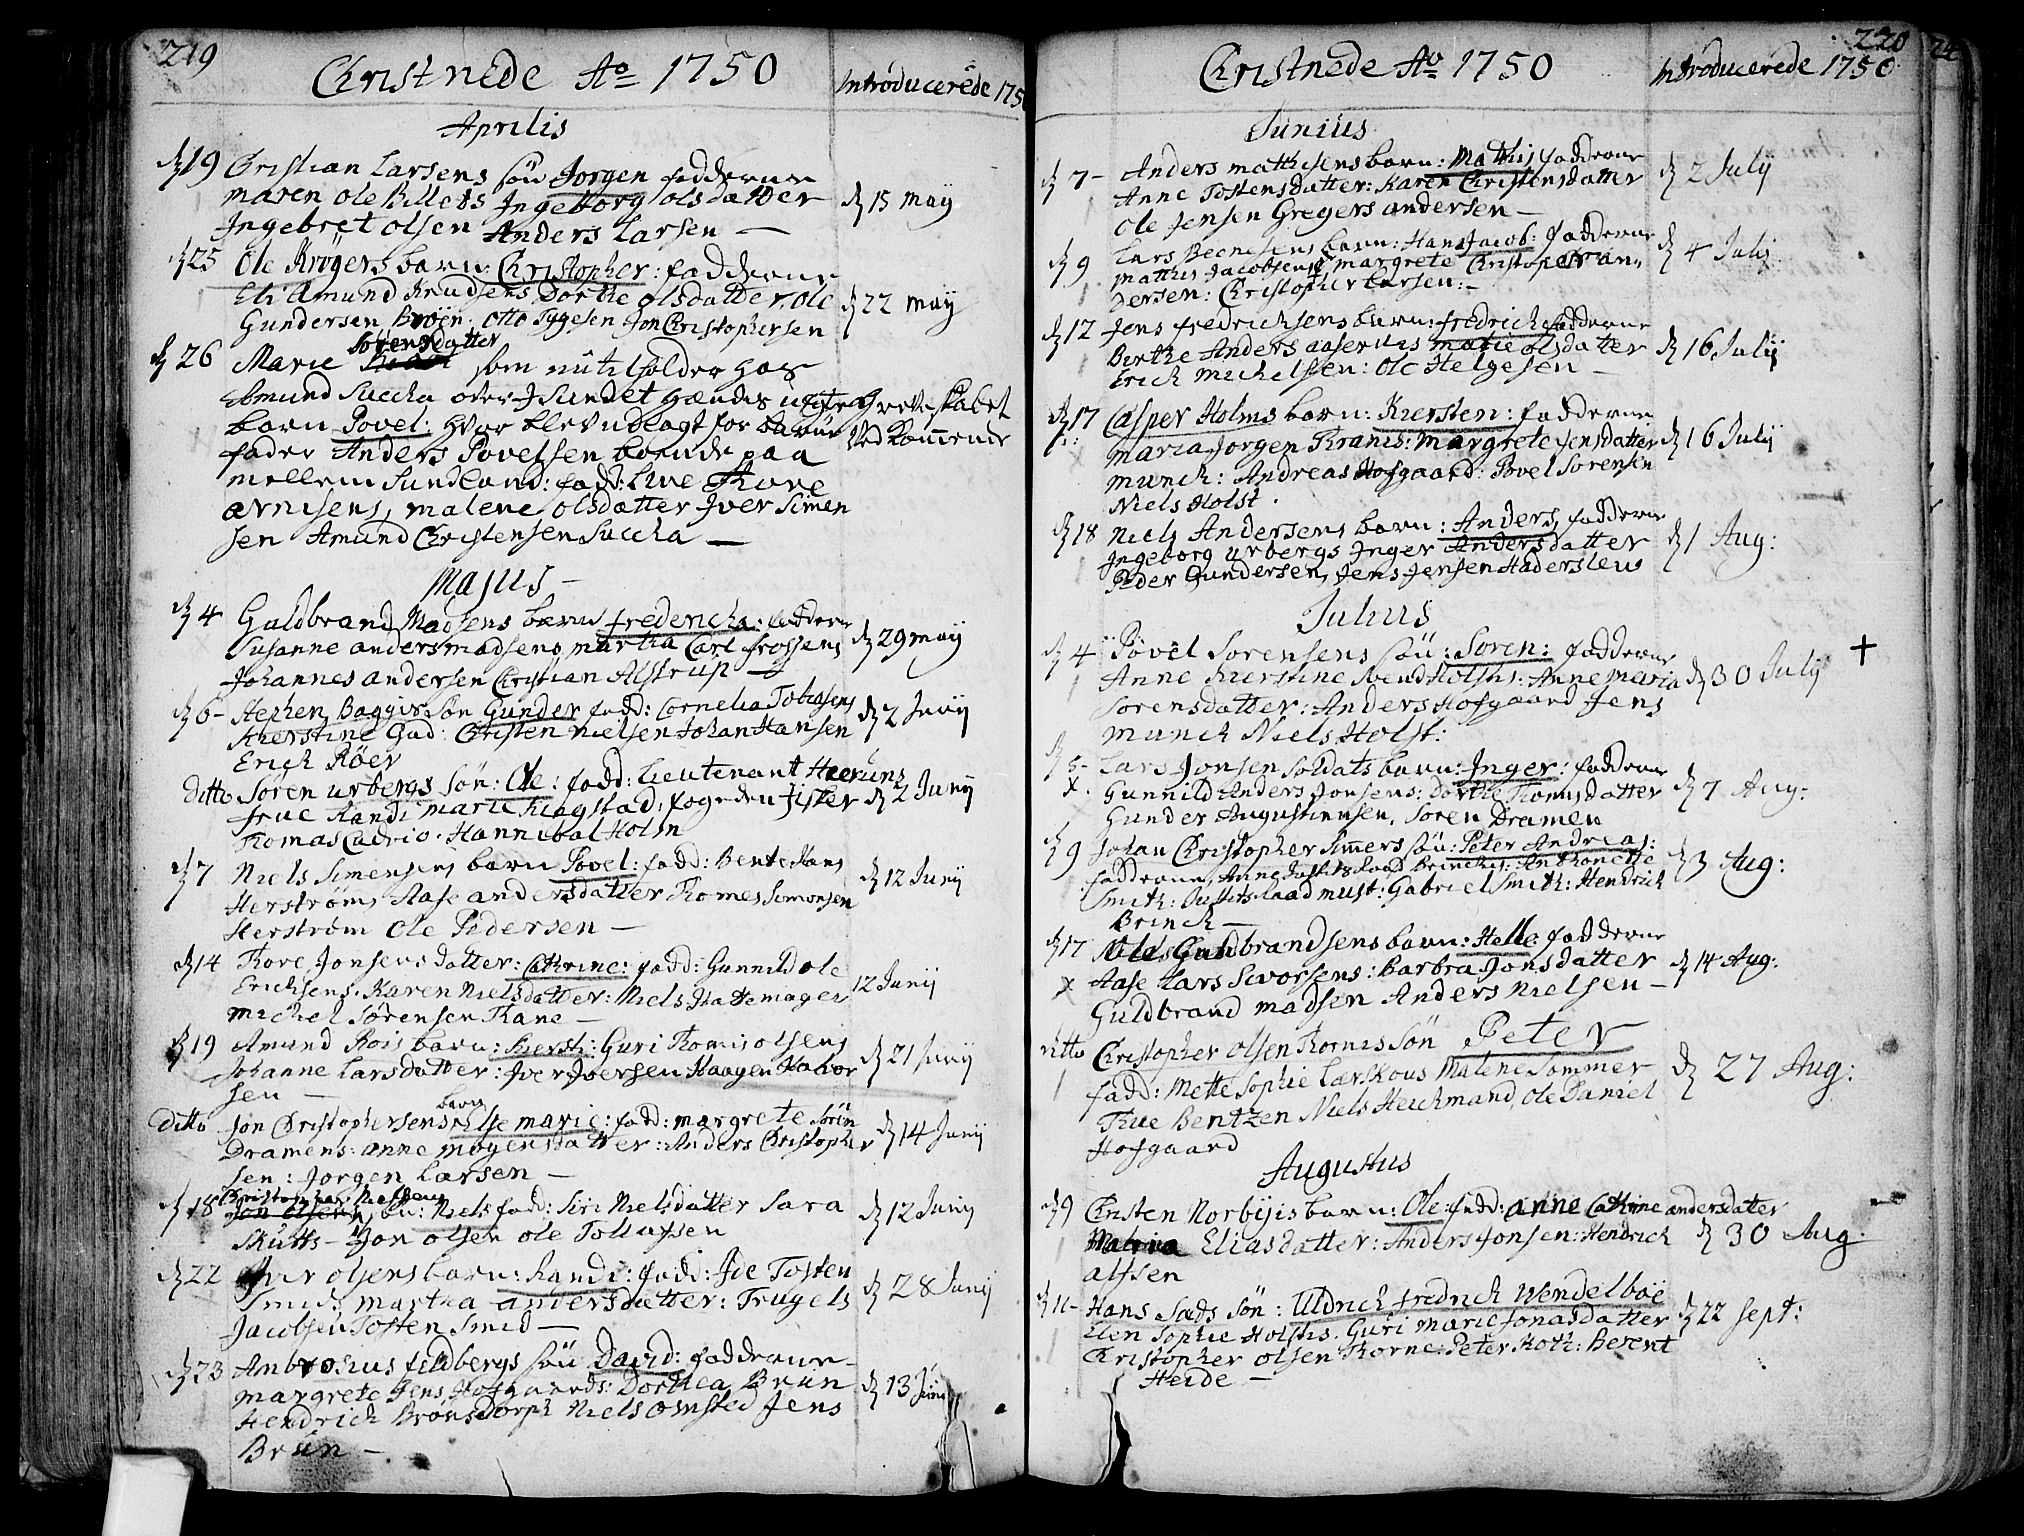 219
Christnede Ao 1750
Introducerede 1750
Aprilis
19 Christian Larsens söu Jorgen fadderne
maren Ole Billets Ingeborg olsdatter
Ingebret olsen Anders Larsen —
d 15 may
25 Ole Krögers barn: Christopher: fadderne
Eli Amund Knudsens Dorthe olsdatter, Ole
Gundersen Broen. Otto Tygesen Jon Christophersen
d 22 may
Sörensdatter
26 Marie som nu tilholder hos
Edmund Succha over I Sundet hendis uegte
barn Povel: hvor blev udlagt for barne
fader Anders Povelsen boende paa
mellem Sundland: fadd: Live Thore
arnisens, malene olsdatter Iver Simen
sen Amund Christensen Succha —
Grevskabet
Ved Kommende
Majus —
4 Guldbrand Madsens barn fredericha: fadderne
Susanne anders madsens, martha Carl frossens
Johannes andersen Christian Alstrup —
d 29 may
6 - Stephen Baggis Sön Gunder fadd: Cornelia Tobiasens
Kierstine Gad: Christen Nielsen Johan Hansen
Erich Röer
d 2 Junij
ditto Sören urbergs Sön: Ole: fadd: Lieutenant
frue Randi marie fogeden fisker
Thomas Cudrio. Hannibal Holm
d 2 Junij
7 Niels Simensens barn Povel: fadd: Bente Hans
Herströms Aase andersdatter Thomes Simonsen
Herström Ole Pedersen —
d 12 Junij
14 Thore Jonsens datter: Cathrine: fadd: Gunnild ole
Ericksens. Karen Nielsdatter: Niels Hattemager
Michel Sörensen Kane —
12 Junij
19 Amund Rois barn: Kiersti: Guri Thomis olsens
Johanne Larsdatter: Iver Iversen Haagen Halvor
sen —
d 21 Junij
barn
ditto Jon Christophersens Else marie: fadd: margrete Sörin
Dramens: anne mogensdatter: Anders Christopher
sen: Jorgen Larsen —
d 14 Junij
18 Jon olsens bn: Niels fadd: Siri Nielsdatter Sara
Skütts - Jon olsen ole Tollafsen
d 12 Junij
22 Iver olsens barn: Randi: fadd: Ide Tosten
Smids martha andersdatter: Trugels
Jacobsen Tosten Smid —
d 28 Junij
23 Ambrosius feldbergs söu David: fadderne
margrete Jens Hofgaards: Dorthea Brün
Hendrich Brönsdorph Niels omsted Jens
Brün —
d 13 Junij
220
Christnede Ao 1750
Introducerede 1750
Junius
7 - Anders matthisens barn: Mathis fadderne
Anne Tostensdatter: Karen Christensdatter
Ole Jensen Gregers andersen —
d 2 Julij
9 Lars barn: Hans Jacob: fadderne
matthis Jacobsens margrete
dersen: Christopher Larsen: —
d 4 Julij
12 Jens fredrichsens barn: fredrich fadderne
Berthe Anders marie olsdatter
Erich michelsen: Ole Helgesen —
d 16 Julij
17 Casper Holms barn: Kiersten: fadderne
maria Jorgen Kranis: Margrete Jensdatter
munck: Andreas Hofgaard: Povel Sorensen
Niels Holst.
d 16 Julij
18 Niels Andersens barn: Anders, fadderne
Ingeborg urbergs Inger Andersdatter
Peder Gundersen, Jens Jensen Hadersleus
d 1 Aug:
Julius
4 Povel Sorensens söu: Soren: fadderne
Anne Kierstine Svend Holsts: Anne Maria
Sorensdatter: Anders Hofgaard Jens
munck Niels Holst:
d 30 Julij
5 - Lars Jonsen Soldats barn: Inger: fadderne
Gunnild Anders Jonsens: Dorthe Thomisdatter
Gunder Augustinusen, Sören Dramen
d 7 Aug:
9 Johan Christopher Simers söu: Peter Andreas:
fadderne, Anne Justits Raad Brinchs: Anthonette
Smith: Justits Raad must: Gabriel Smith: Hendrich
Brinch —
d 3 Aug:
17 Niels Guldbrandsens barn: Helle fadderne
Aase Lars Sivorsens: Barbra Jonsdatter
Guldbrand madsen Anders Nielsen —
d 14 Aug:
ditto Christopher olsen Thornes Sön Peter
fadd: Mette Sophie Larskous Malene Sommer
Thue Bentzen Niels Heichmand, Ole Daniel
Hofgaard
d 27 Aug:
Augustus
9 Christen Norbyis barn: Ole: fadd: anne Cathrine andersdatter
Maria Eliasdatter: Anders Jonsen: Hendrich
alfsen
d 30 Aug.
11 - Hans Sads Sön: Uldrich fredrich Wendelboe
Elen Sophie Holsts. Guri marie Jonasdatter
Christopher olsen Thorne: Peter Hoth: Berent
Heide —
d 22 Sept: